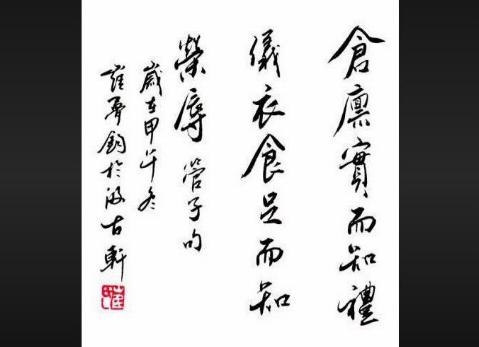 倉廩實而知禮
儀衣食足而知
榮辱 管子句
歲在甲午冬
鈞於汲古軒